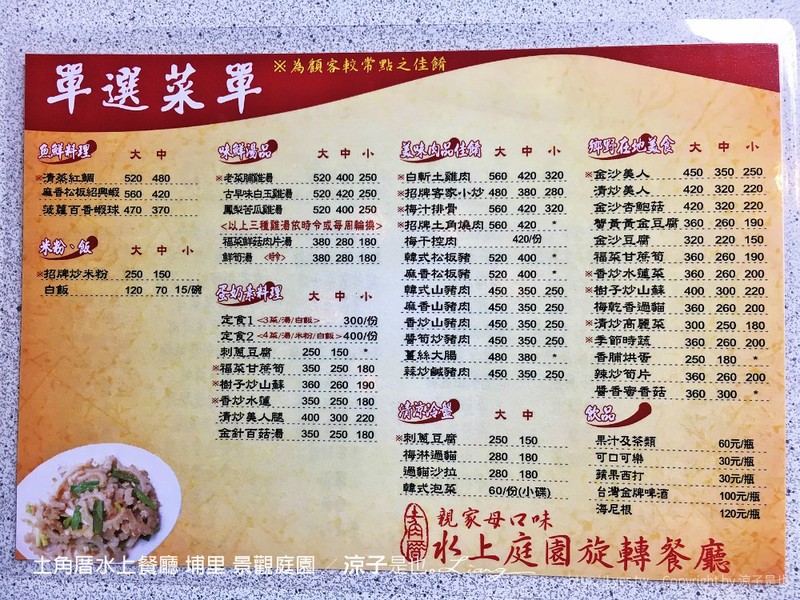 單選菜單
※為顧客較常點之佳餚
魚鮮料理 大 中
※清蒸紅鯛 520 480
麻香松板紹興蝦 560 420
菠蘿百香蝦球 470 370
米粉、飯 大 中 小
※招牌炒米粉 250 150
白飯 120 70 15/碗
味鮮湯品 大 中 小
※老菜脯雞湯 520 400 250
古早味白玉雞湯 520 420 250
鳳梨苦瓜雞湯 520 400 250
<以上三種雞湯依時令或每周輪換>
福菜鮮菇肉片湯 380 280 180
鮮筍湯 <時令> 380 280 180
蛋奶素料理 大 中 小
定食1 <3菜/湯/白飯> 300/份
定食2 <4菜/湯/米粉/白飯> 400/份
刺蔥豆腐 250 150 *
※福菜甘蔗筍 350 250 180
※樹子炒山蘇 360 260 190
※香炒水蓮 350 250 180
清炒美人腿 400 300 220
金針百菇湯 350 250 180
美味肉品佳餚 大 中 小
※白斬土雞肉 560 420 320
※招牌客家小炒 480 380 280
※梅汁排骨 560 420 320
※招牌土角燒肉 560 420 *
梅干控肉 420/份
韓式松板豬 520 400 *
麻香松板豬 520 400 *
韓式山豬肉 450 350 250
麻香山豬肉 450 350 250
香炒山豬肉 450 350 250
醬筍炒山豬肉 450 350 250
薑絲大腸 480 380 *
蒜炒鹹豬肉 450 350 250
清涼冷盤 大 中
※刺蔥豆腐 250 150
梅淋過貓 280 180
過貓沙拉 280 180
韓式泡菜 60/份(小碟)
鄉野在地美食 大 中 小
※金沙美人 450 350 250
清炒美人 420 320 220
金沙杏鮑菇 420 320 220
蟹黃黃金豆腐 360 260 190
金沙豆腐 320 220 150
※福菜甘蔗筍 360 260 190
※香炒水蓮菜 360 260 200
※樹子炒山蘇 400 300 220
梅乾香過貓 360 260 200
※清炒高麗菜 300 250 180
※季節時蔬 360 260 200
香脯烘蛋 250 180 *
辣炒筍片 360 260 200
醬香蜜香菇 360 300 *
飲品
果汁及茶類 60元/瓶
可口可樂 30元/瓶
蘋果西打 30元/瓶
台灣金牌啤酒 100元/瓶
海尼根 120元/瓶
土角厝
親家母口味
水上庭園旋轉餐廳
土角厝水上餐廳 埔里 景觀庭園 / 涼子是也
Copyright by 涼子是也